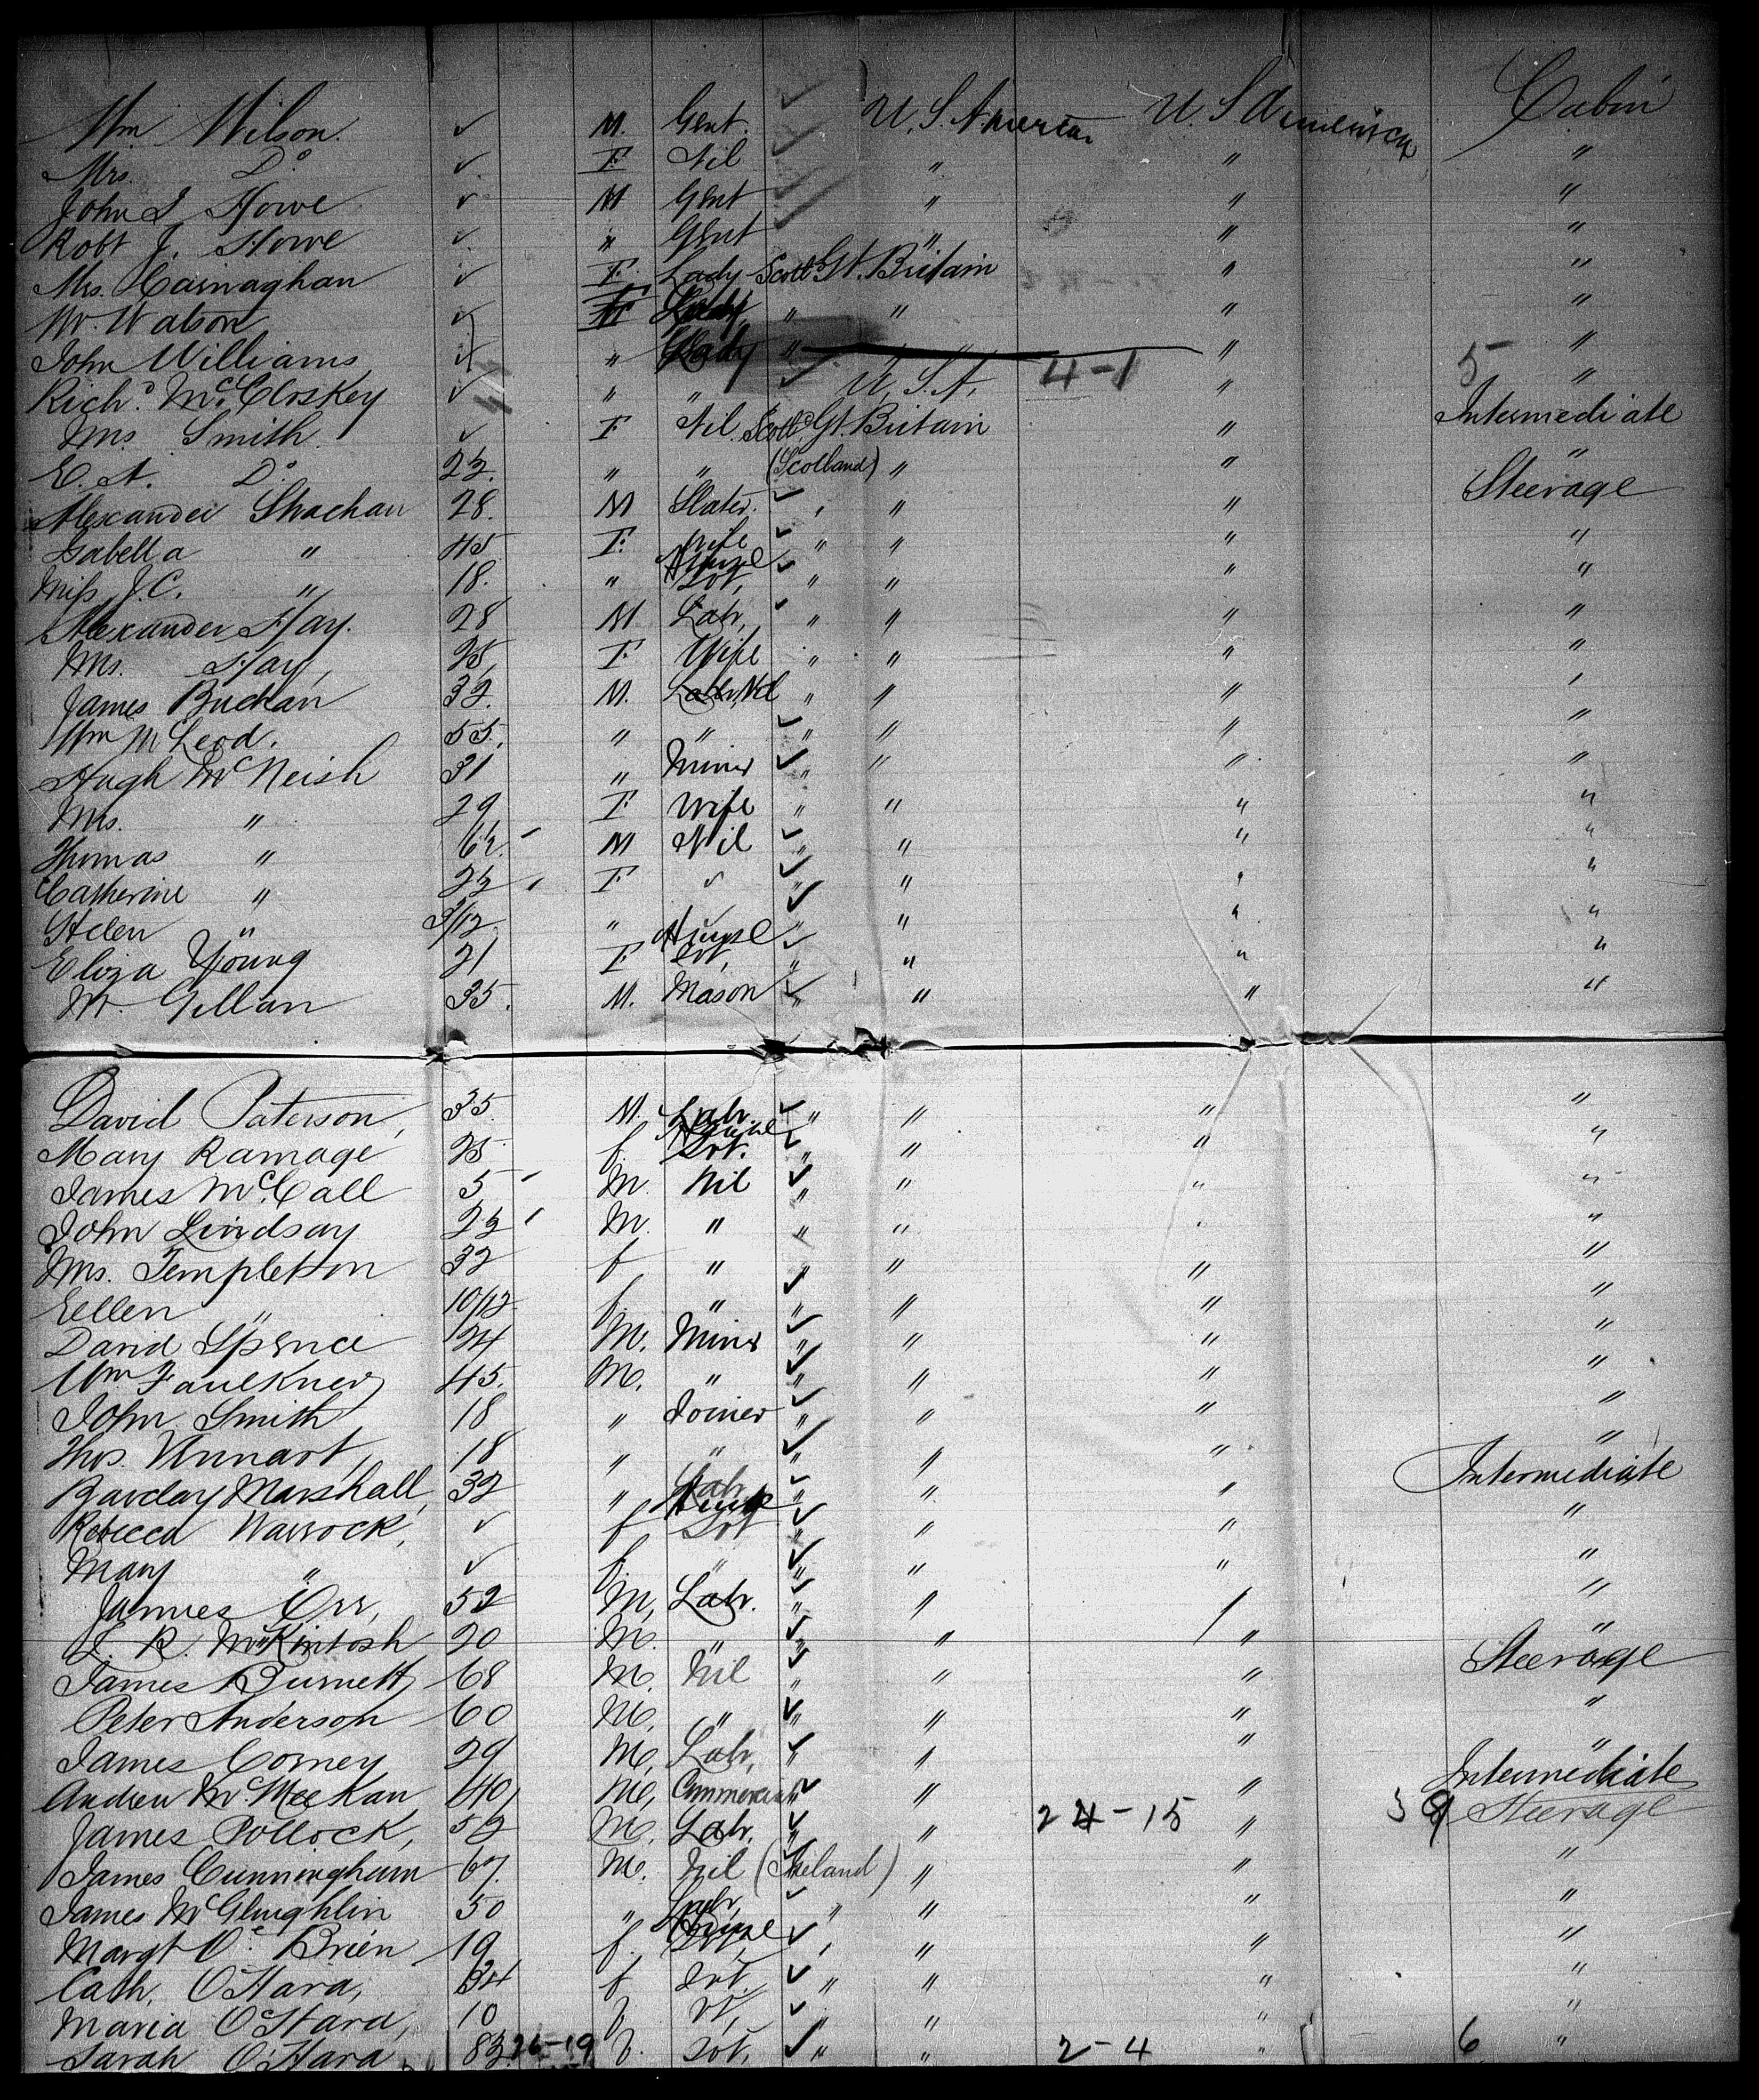 Wm Wilson. ✓ M. Gent. U.S. America U.S America Cabin
Mrs. Do ✓ F Nil " " "
John S Howe ✓ M Gent " " "
Robt J. Howe ✓ " Gent " " "
Mrs. Carnaghan ✓ F. Lady Scotld Gt. Britain " "
Mr. Watson ✓ " " " "
John Williams ✓ " Lady " " " "
Richd. McCloskey ✓ " " U.S.A. 4-1 " 5 "
Mrs Smith ✓ F Nil Scotld Gt. Britain " Intermediate
E. A. Do " " (Scotland) " " "
Alexander Strachan 28. M Slater. " " " Steerage
Isabella " 45 F. Wife " " " "
Miss J.C. " 18. " House Svt, " " " "
Alexander Hay. 28 M Labr, " " " "
Mrs. Hay, 28, F Wife " " " "
James Buchan 32. M. Nil " " " "
Wm McLeod. 55. " " " " " "
Hugh McNeish 31 " Miner " " " "
Mrs. " 29 F Wife " " " "
Thomas " M Nil " " " "
Catherine " F " " " " "
Helen " 3/12 " " " " "
Eliza Young 21 F House Svt, " " " "
W. Gillan 35. M. Mason " " " "
David Paterson, 35. M. Labr " " " "
Mary Ramage 25 f. House Svt. " " " "
James McCall 5 M. Nil " " " "
John Lindsay M. " " " " "
Mrs. Templeton 32 f " " " " "
Eellen " 10/12 f. " " " " "
David Spence 24 M. Miner " " " "
Wm Faulkner 45. M. " " " " "
John Smith 18 " Joiner " " " "
Thos. 18 " " " " " "
Barclay Marshall, 32 " Labr " " " Intermediate
Rebecca Warrock, ✓ f House Svt " " " "
Mary " ✓ f. " " " " "
James Orr, 52 M, Labr. " " "
R. McKintosh 20 M. " " " " "
James Burnett 68 M. Nil " " " Steerage
Peter Anderson 60 M. " " " " "
James Corney 29 M, Labr, " " " "
Andrew McMeekan 40, M, Commercial " " Intermediate
James Pollock, 52 M. Labr. " " 24-15 " Steerage
James Cunningham 67. M. Nil (Ireland) " " "
James McGlughlin 50 " Labr, " " " "
Margt O'Brien 19 f. House Svt, " " " "
Cath, O'Hara, 34 f Svt, " " " "
Maria O'Hara, 10 f. " " " "
Sarah O'Hara 26-19 f. Svt, " " 2-4 " 6 "